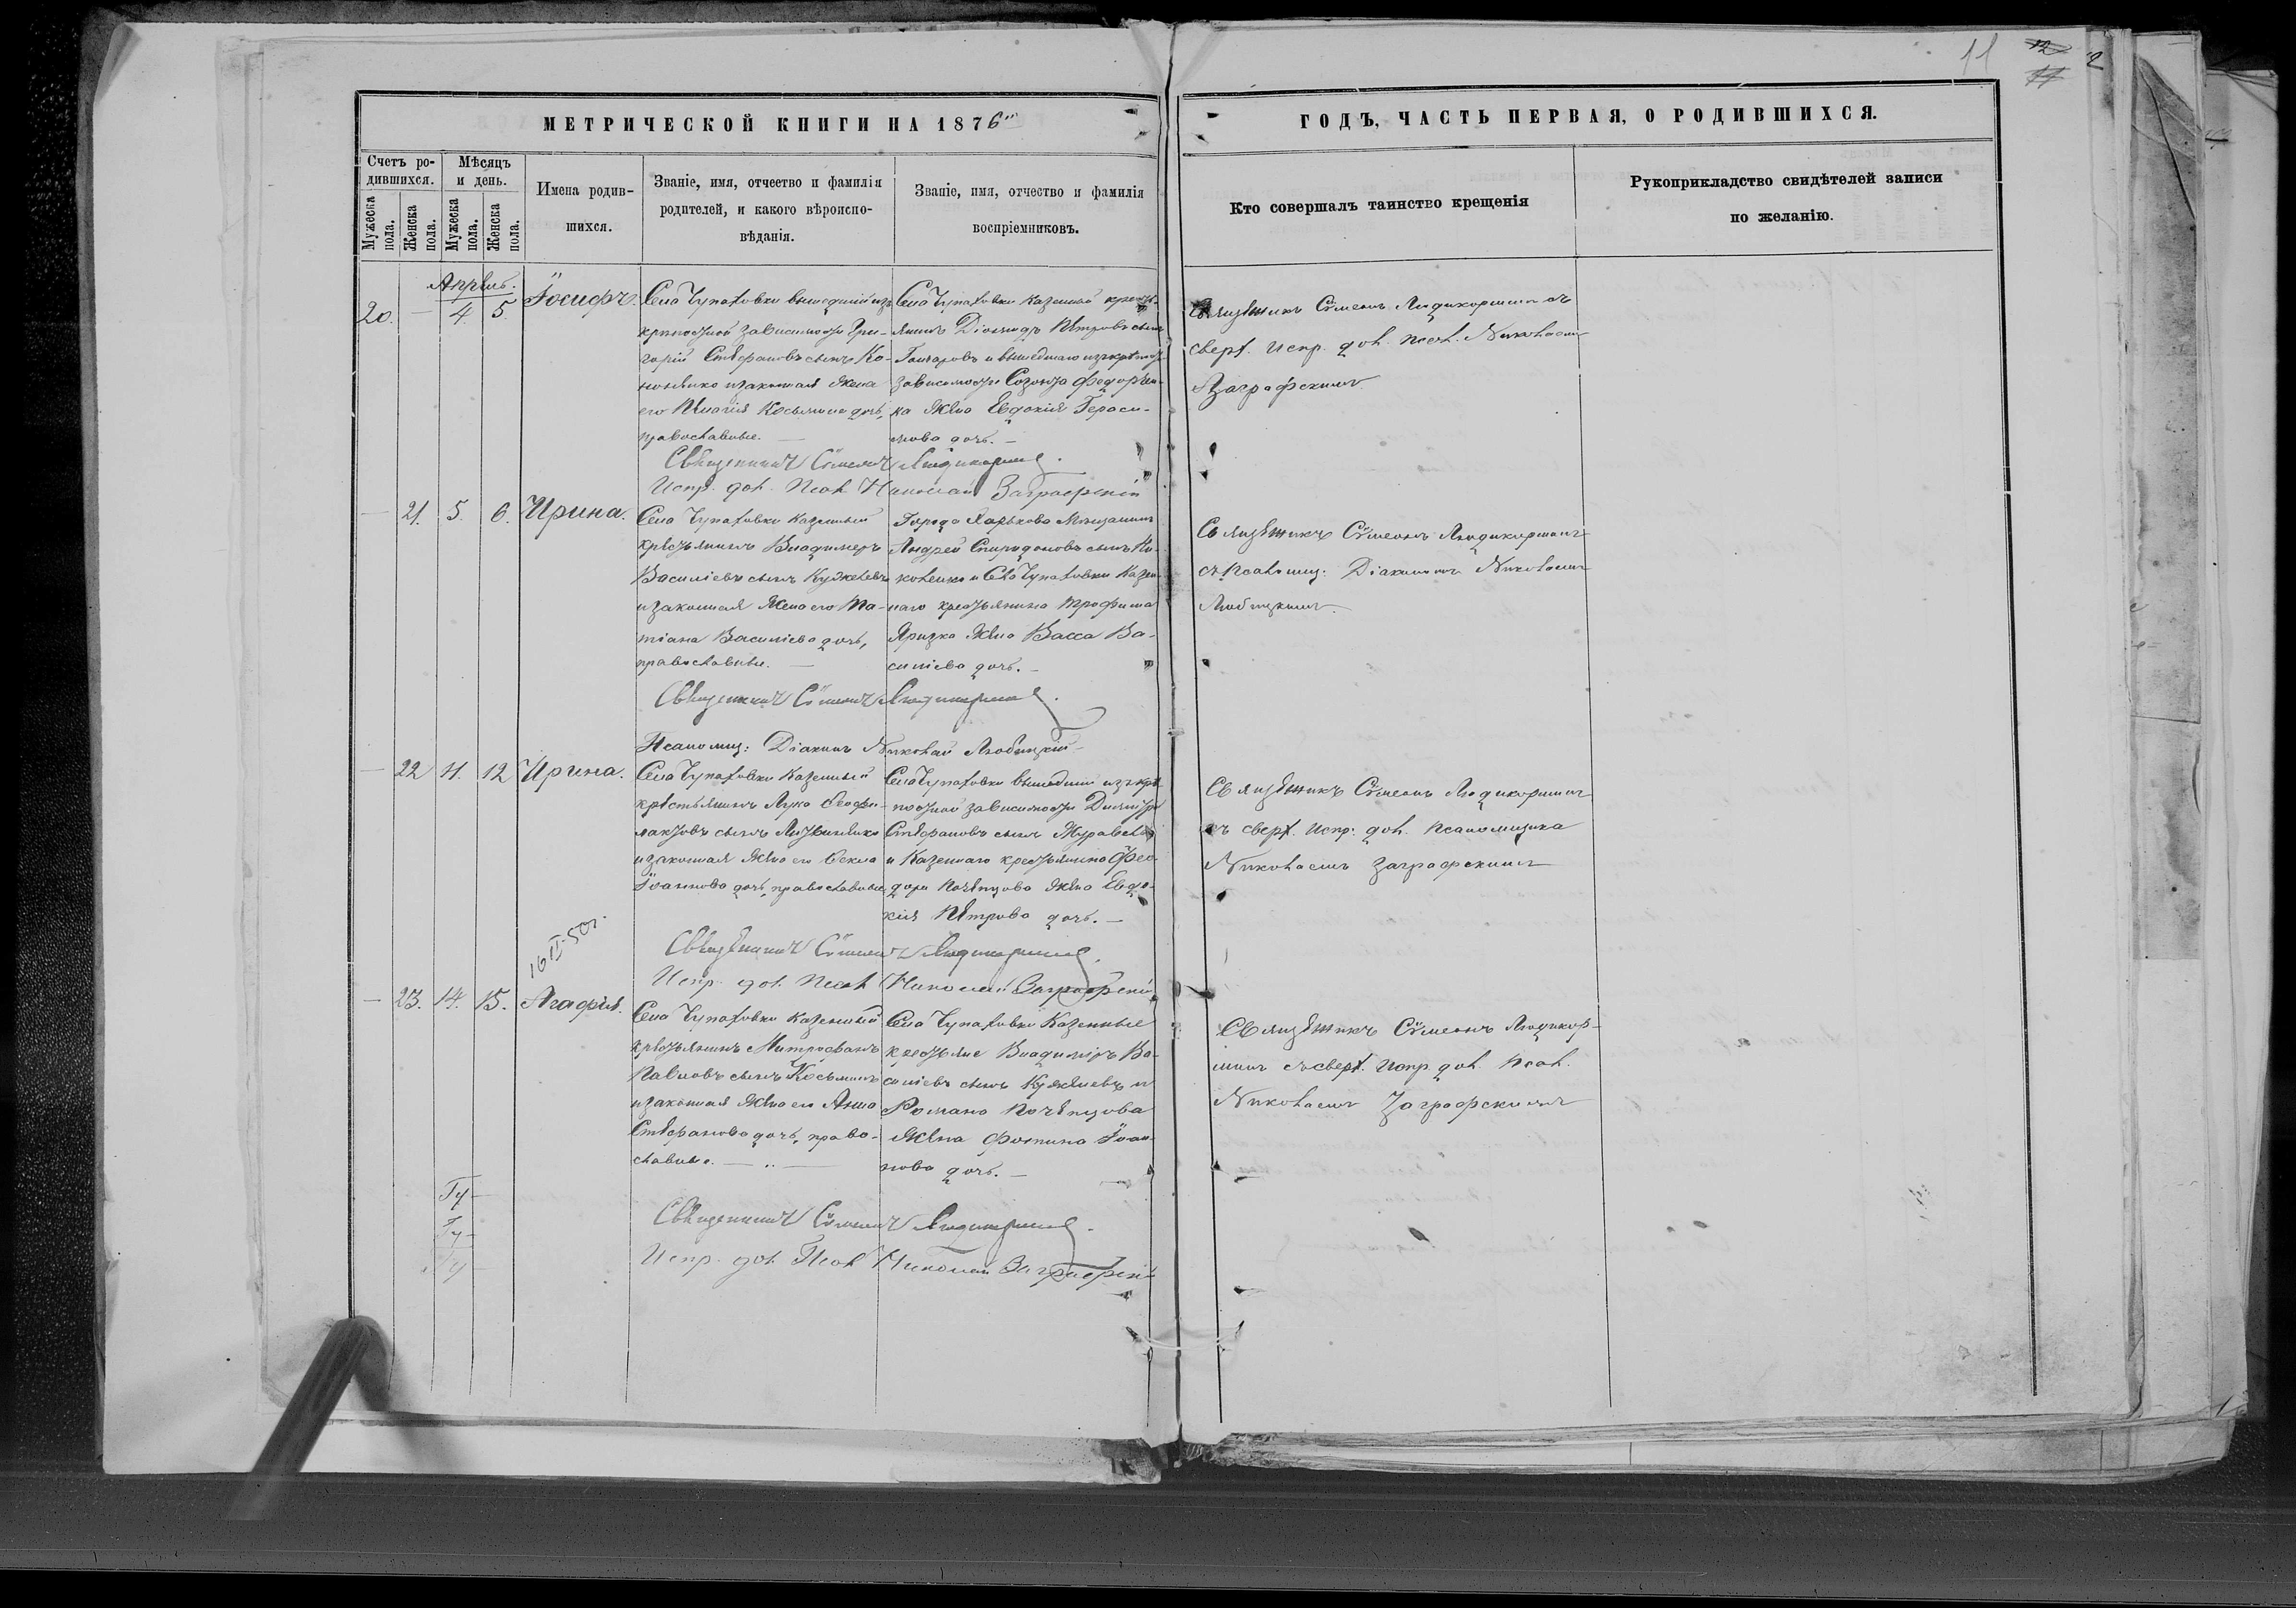 11
МЕТРИЧЕСКОЙ КНИГИ НА 1876
ГОДЪ, ЧАСТЬ ПЕРВАЯ, О РОДИВШИХСЯ.
Счетъ ро-
дившихся.
Мѣсяцъ
и день.
Мужеска пола.
Женска пола.
Мужеска пола.
Женска пола.
Имена родив-
шихся.
Званіе, имя, отчество и фамилія
родителей, и какого вѣроиспо-
вѣданія.
Званіе, имя, отчество и фамилія
воспріемниковъ.
Кто совершалъ таинство крещенія
Рукоприкладство свидѣтелей записи
по желанію.
Апрѣль.
20. — 4. 5. Іосифъ.
Села Чупаховки вышедшій изъ
крѣпостной зависимости Гри-
горій Стефановъ сынъ Ко-
ноненко и законная жена
его Пелагія Косьмина дочь,
православные. —
Села Чупаховки казенный кресть-
янинъ Діомидъ Петровъ сынъ
Гончаровъ и вышедшаго изъ крѣпост.
зависимости Созонта Федорен-
ка жена Евдокія Гераси-
мова дочь. —
Священникъ Сѵмеонъ
сверх. испр. дол. псал. Николаемъ
Заграфскимъ
Священникъ Сѵмеонъ
Испр. дол. Псал. Николай Заграфскій
— 21. 5. 6. Ирина.
Села Чупаховки казенный
крестьянинъ Владимеръ
Василіевъ сынъ Кужелевъ
и законная жена его Та-
тіана Василіева дочь,
православные. —
Города Харькова Мѣщанинъ
Андрей Спиридоновъ сынъ
и Села Чупаховки Казен-
наго крестьянина Трофима
жена Васса Ва-
силіева дочь. —
Священникъ Сѵмеонъ
съ псаломщ: Діакономъ Николаемъ
Любицкимъ
Священникъ Сѵмеонъ
Псаломщ: Діаконъ Николай Любицкій
— 22 11. 12 Ирина.
Села Чупаховки Казенный
крестьянинъ Лука Феофи-
лактовъ сынъ Литвиненко
и законная жена его Фекла
Іоаннова дочь, православные
Села Чупаховки вышедшій изъ крѣ-
постной зависимости Димитрій
Стефановъ сынъ
и Казеннаго крестьянина Фео-
дора Почепцова жена Евдо-
кія Петрова дочь. —
Священникъ Сѵмеонъ
съ сверх. испр. дол. псаломщика
Николаемъ Заграфскимъ
Священникъ Сѵмеонъ
Испр. дол. Псал. Николай Заграфскій
16 II-50г.
— 23. 14. 15. Агафія.
Села Чупаховки казенный
крестьянинъ Митрофанъ
Павловъ сынъ Косьминъ
и законная жена его Анна
Стефанова дочь, право-
славные. —
Села Чупаховки Казенные
крестьяне Владиміръ Ва-
силіевъ сынъ Кужелевъ и
Романа Почепцова
жена Фотина Іоан-
нова дочь. —
Священникъ Сѵмеонъ
съ сверх. испр. дол. псал.
Николаемъ Заграфскимъ
Священникъ Сѵмеонъ
Испр. дол. Псал. Николай Заграфскій